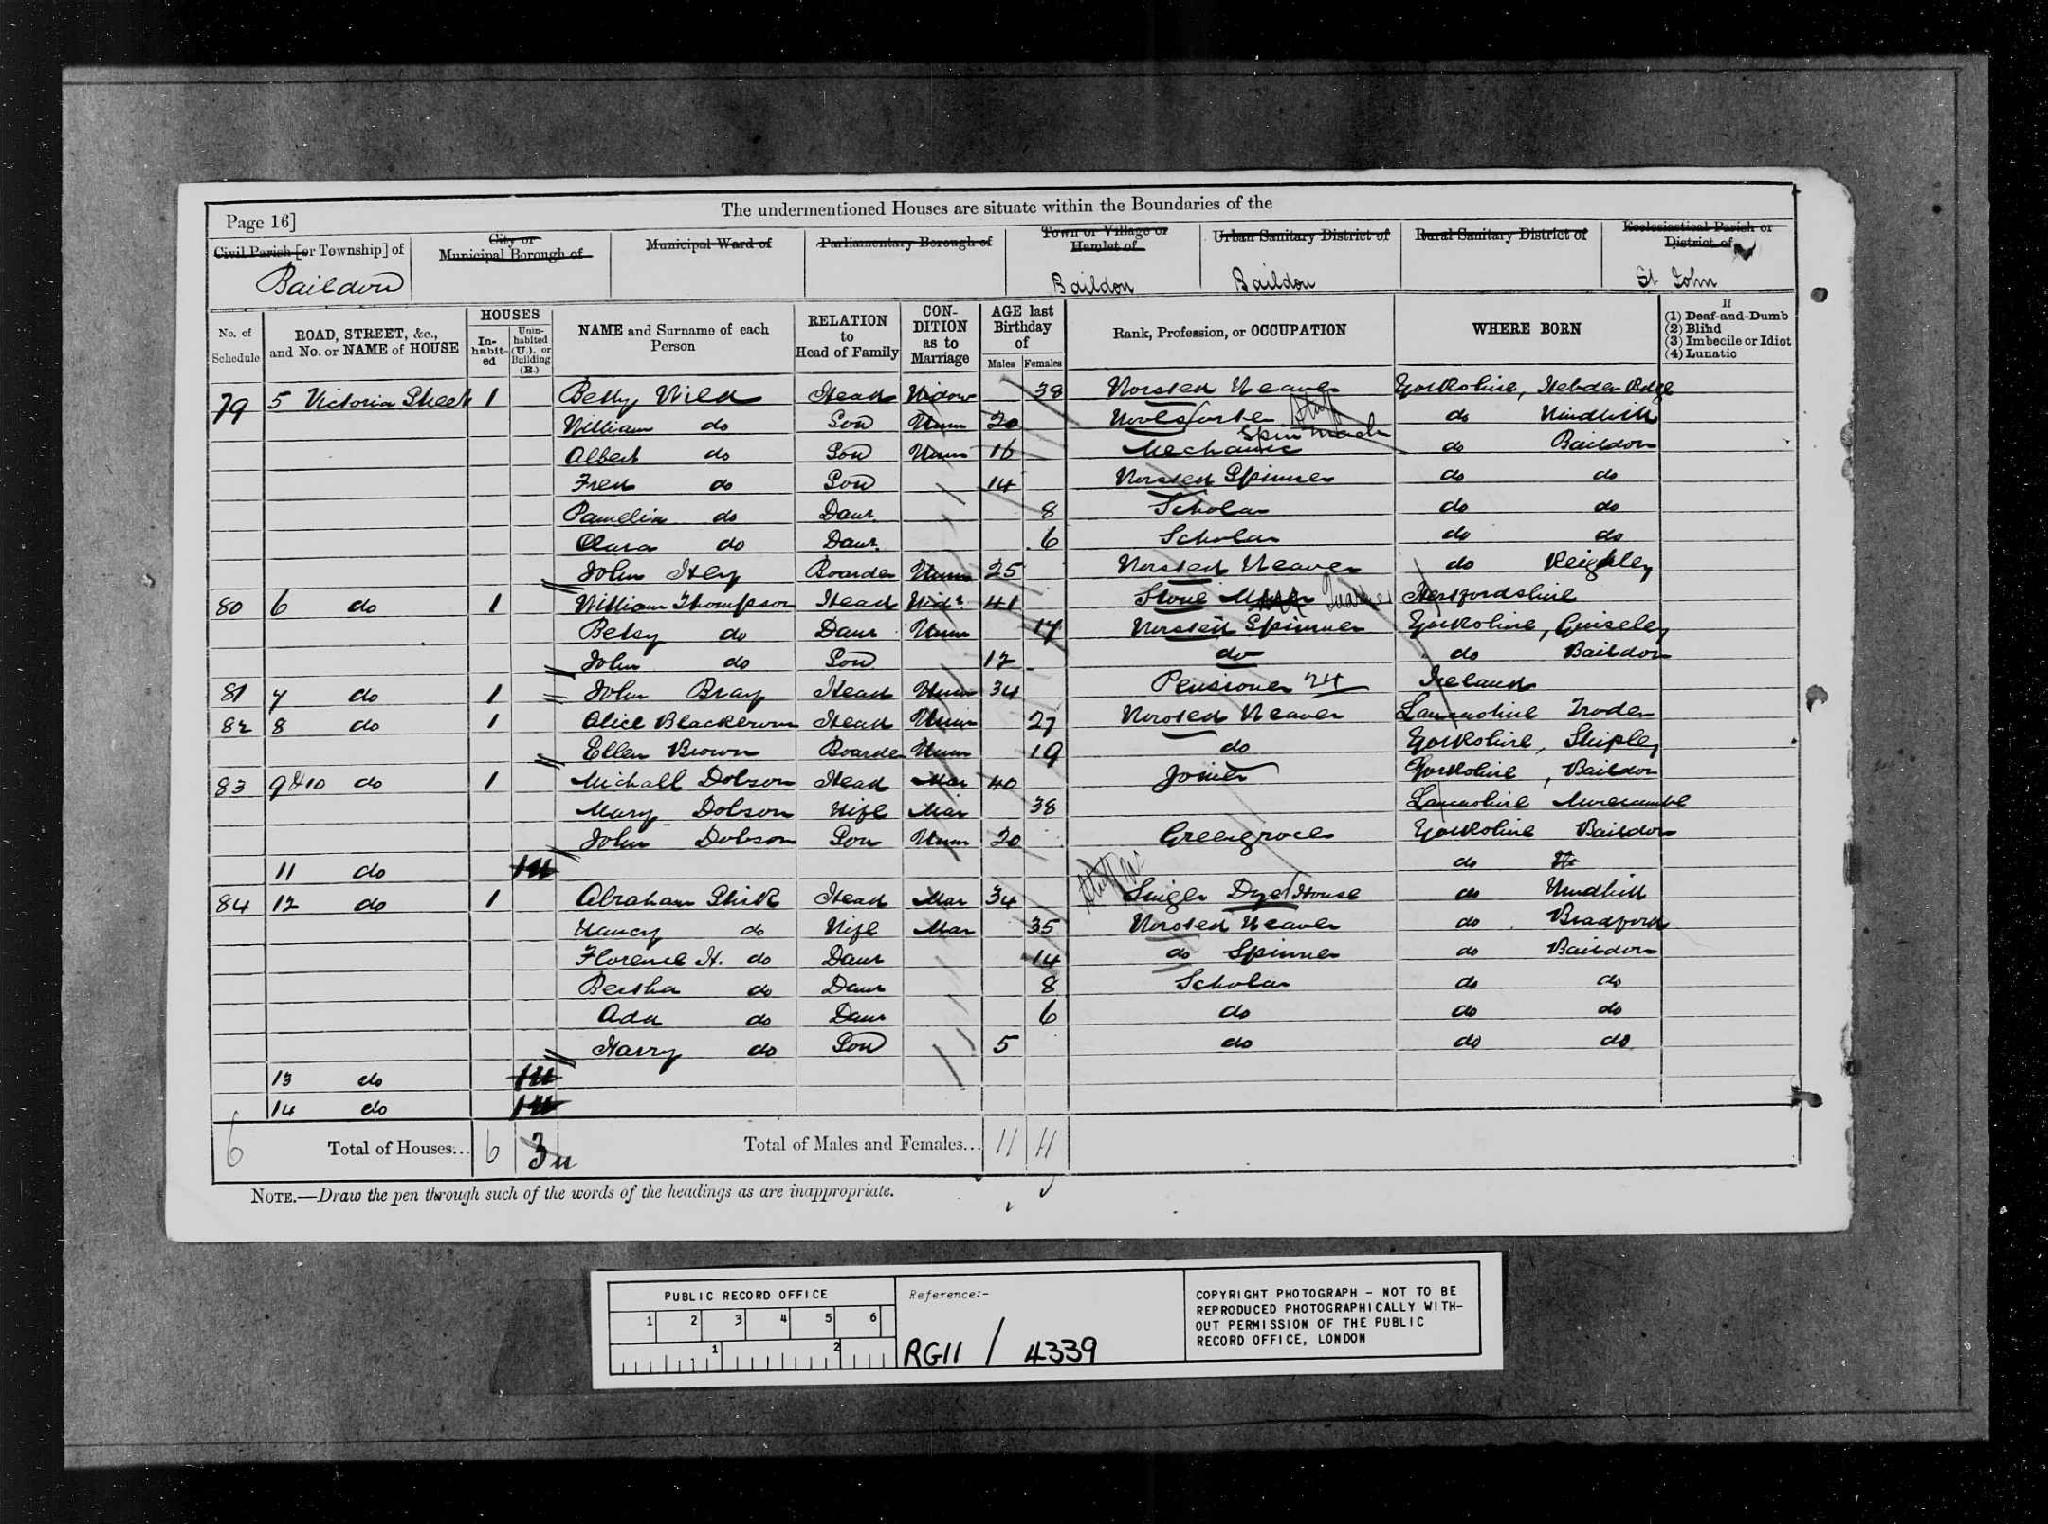 The undermentioned Houses are situate within the Boundaries of the
Page 16]
Civil Parish [or Township] of
City or Municipal Borough of
Municipal Ward of
Parliamentary Borough of
Town or Village or Hamlet of
Urban Sanitary District of
Rural Sanitary District of
Ecclesiastical Parish or District of
Baildon Baildon Baildon St John
No. of Schedule
ROAD, STREET, &c., and No. or NAME of HOUSE
HOUSES
In-habit-ed
Unin-habited (U.), or Building (B.)
NAME and Surname of each Person
RELATION to Head of Family
CON-DITION as to Marriage
AGE last Birthday of
Males Females
Rank, Profession, or OCCUPATION
WHERE BORN
If
(1) Deaf-and-Dumb
(2) Blind
(3) Imbecile or Idiot
(4) Lunatic
79 5 Victoria Street 1 Betty Head Widow 38 Worsted Weaver Yorkshire, Hebden Bdge
William do Son Unm 20 Woolsorter Stuff do Windhill
Albert do Son Unm 16 Mechanic Spin Mach do Baildon
Fred do Son 14 Worsted Spinner do do
Pamelia do Daur. 8 Scholar do do
Clara do Daur. 6 Scholar do do
John Hey Boarder Unm 25 Worsted Weaver do Keighley
80 6 do 1 William Thompson Head Widr 41 Stone Quarrier Herefordshire
Betsy do Daur Unm 17 Worsted Spinner Yorkshire, Guiseley
John do Son 12 do do Baildon
81 7 do 1 John Bray Head Unm 34 Pensioner 24 Ireland
82 8 do 1 Alice Blackbrown Head Unm 27 Worsted Weaver Lancashire Troden
Ellen Brown Boarder Unm 19 do Yorkshire, Shipley
83 9 & 10 do 1 Michall Dobson Head Mar 40 Joiner Yorkshire, Baildon
Mary Dobson Wife Mar 38 Lancashire Morecambe
John Dobson Son Unm 20 Greengrocer Yorkshire Baildon
11 do 1U do
84 12 do 1 Abraham Head Mar 34 Singer Dye House do Windhill
Nancy do Wife Mar 35 Worsted Weaver do Bradford
Florence H. do Daur 14 do Spinner do Baildon
Bertha do Daur 8 Scholar do do
Ada do Daur 6 do do do
Harry do Son 5 do do do
13 do 1U
14 do 1U
6 Total of Houses... 6 3u Total of Males and Females... 11 11
NOTE.—Draw the pen through such of the words of the headings as are inappropriate.
PUBLIC RECORD OFFICE
1 2 3 4 5 6
1 2
Reference:-
RG11 / 4339
COPYRIGHT PHOTOGRAPH - NOT TO BE
REPRODUCED PHOTOGRAPHICALLY WITH-
OUT PERMISSION OF THE PUBLIC
RECORD OFFICE, LONDON